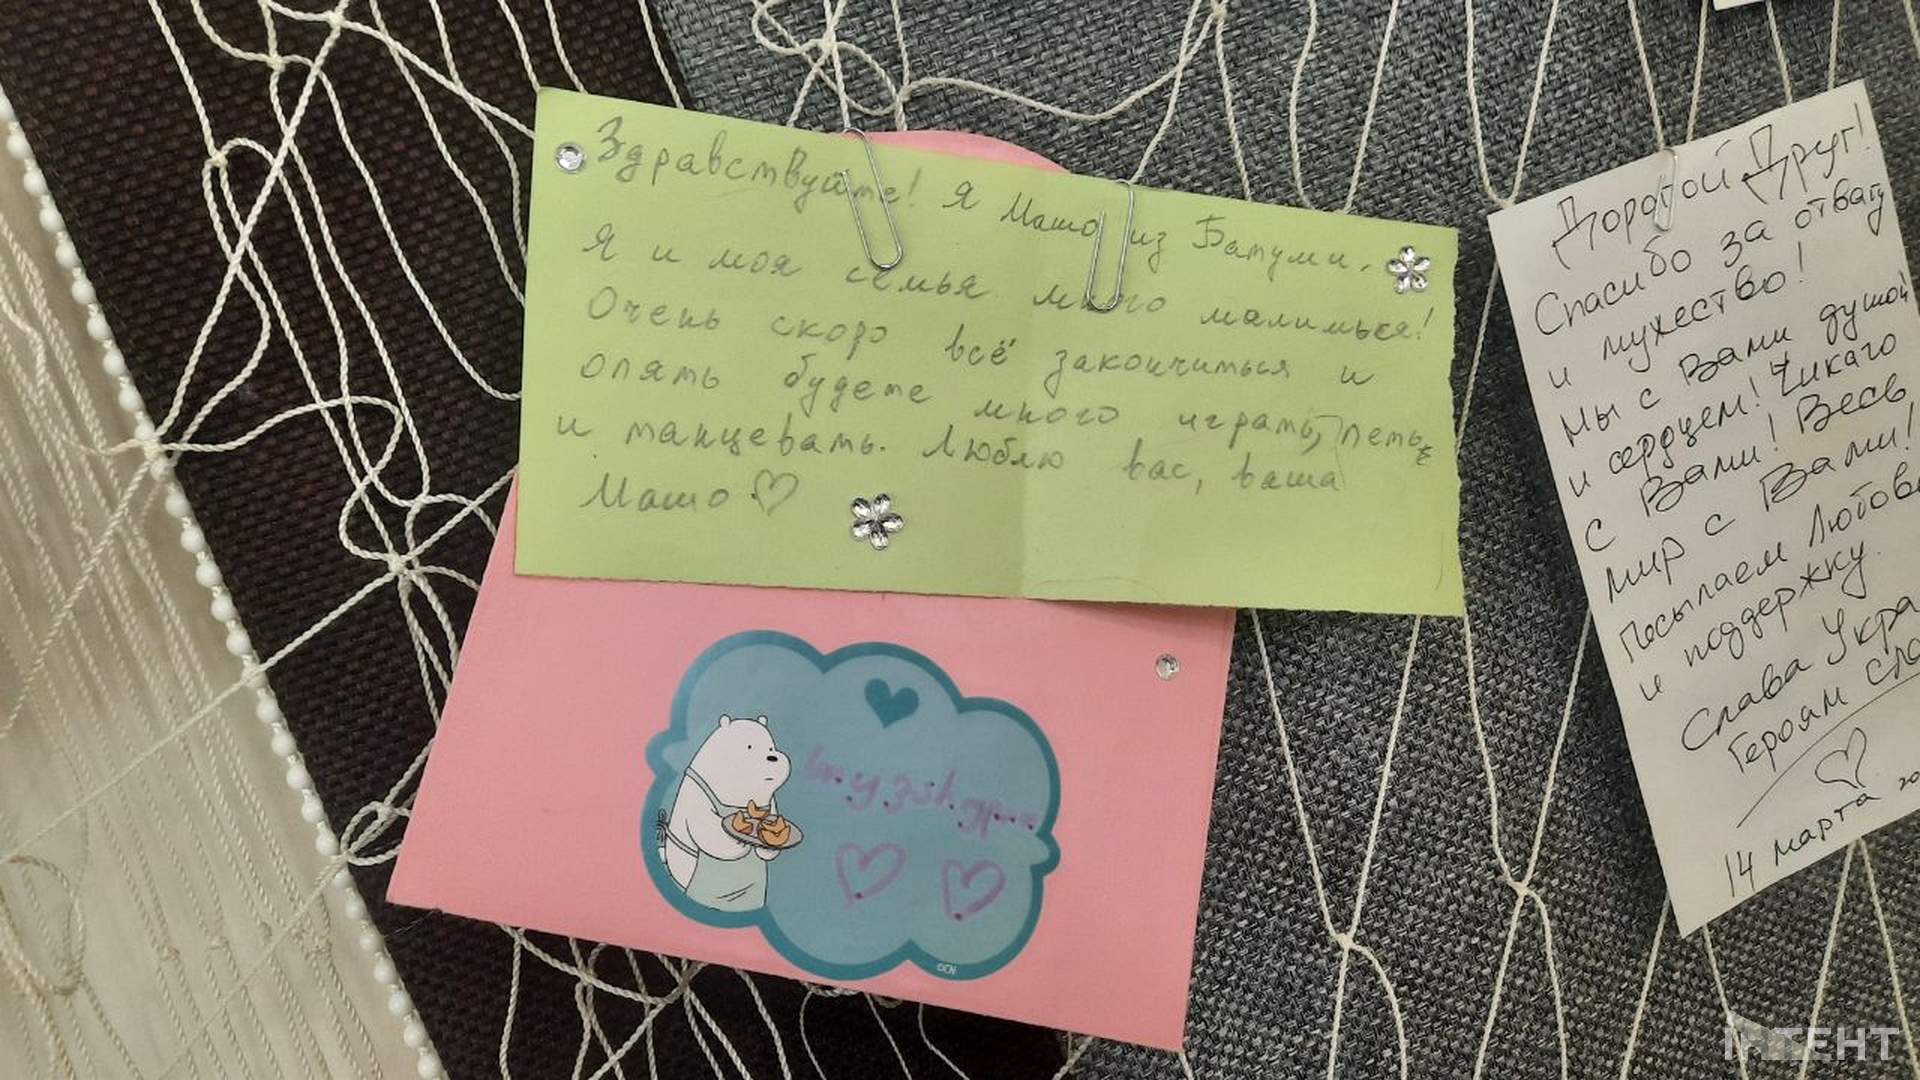 Здравствуйте! Я Машо из Батуми.
Я и моя семья много малимься!
Очень скоро всё закончиться и
опять будете много играть, петь
и танцевать. Люблю вас, ваша
Машо
Дорогой Друг!
Спасибо за отвагу
и мужество!
Мы с Вами душой
и сердцем! Чикаго
с Вами! Весь
мир с Вами!
Посылаем Любовь
и поддержку.
Слава Укра
Героям сла
14 марта